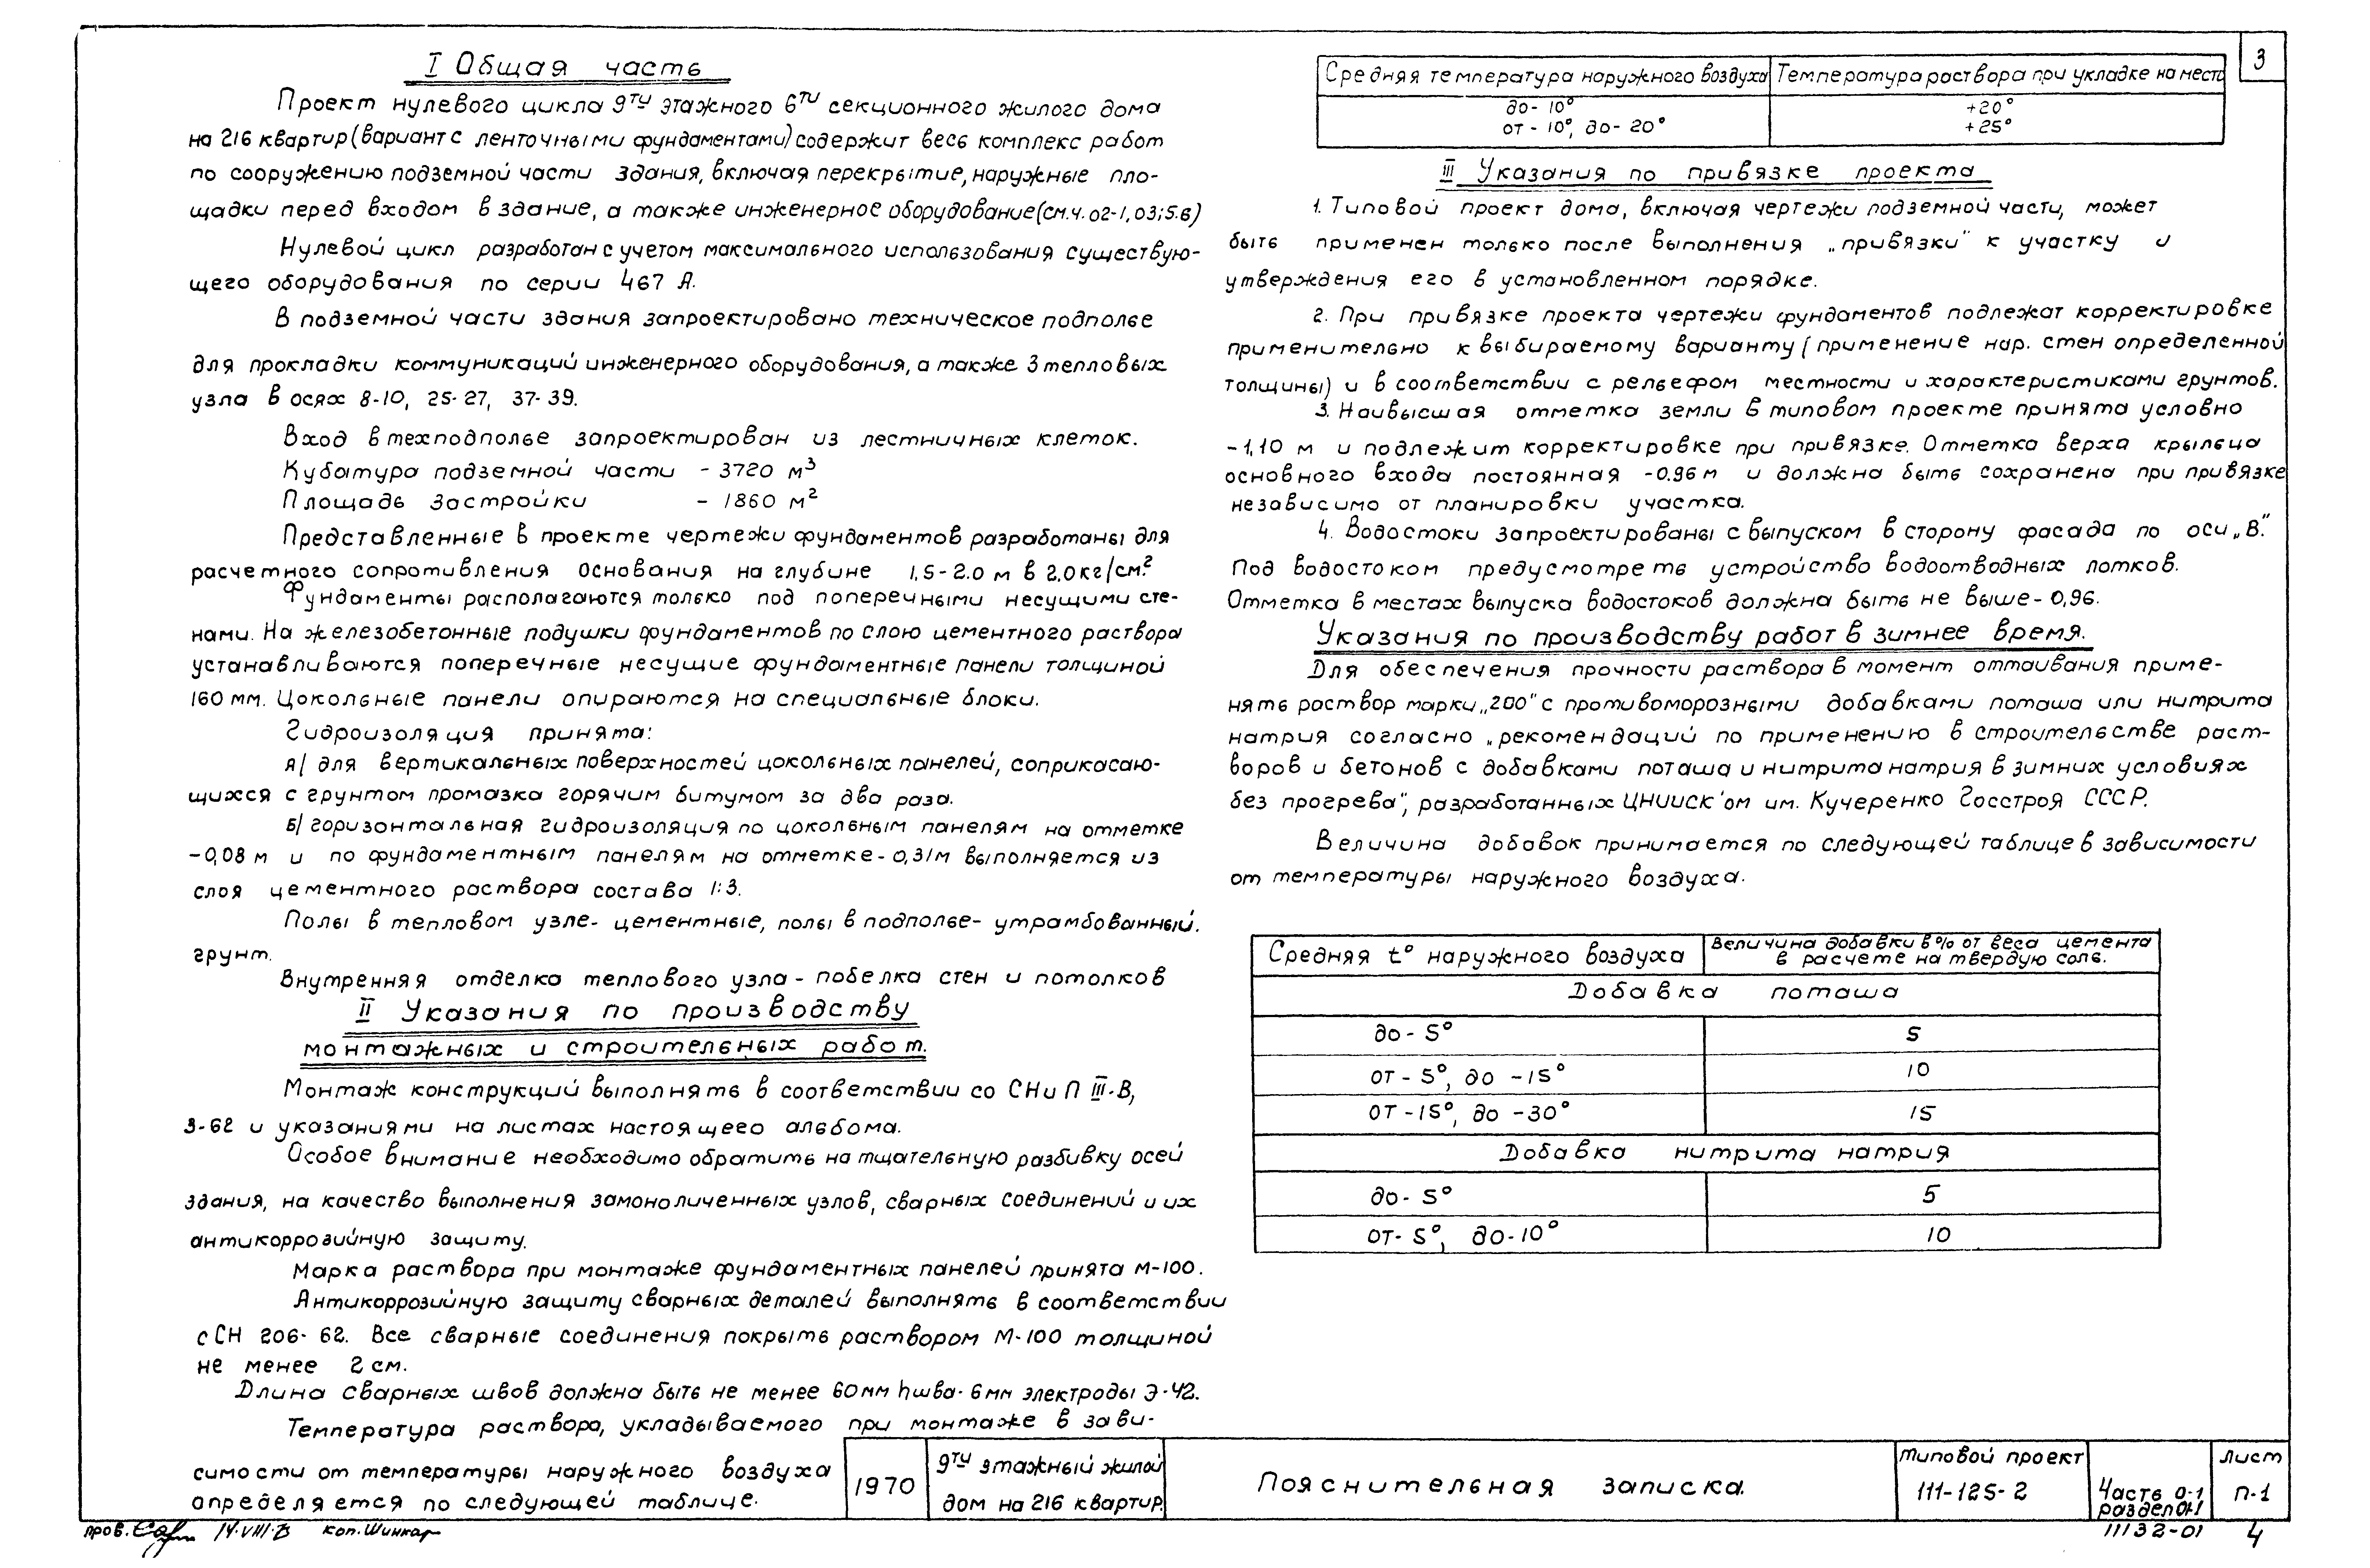 I Общая часть
Проект нулевого цикла 9ти этажного 6ти секционного жилого дома
на 216 квартир (вариант с ленточными фундаментами) содержит весь комплекс работ
по сооружению подземной части здания, включая перекрытие, наружные пло-
щадки перед входом в здание, а также инженерное оборудование (см.ч. 02-1, 03; 5.6)
Нулевой цикл разработан с учетом максимального использования существую-
щего оборудования по серии 467 А.
В подземной части здания запроектировано техническое подполье
для прокладки коммуникаций инженерного оборудования, а также 3 тепловых
узла в осях 8-10, 25-27, 37-39.
Вход в техподполье запроектирован из лестничных клеток.
Кубатура подземной части - 3720 м³
Площадь застройки - 1860 м²
Представленные в проекте чертежи фундаментов разработаны для
расчетного сопротивления основания на глубине 1,5-2.0 м в 2.0 кг/см.²
Фундаменты располагаются только под поперечными несущими сте-
нами. На железобетонные подушки фундаментов по слою цементного раствора
устанавливаются поперечные несущие фундаментные панели толщиной
160 мм. Цокольные панели опираются на специальные блоки.
Гидроизоляция принята:
а/ для вертикальных поверхностей цокольных панелей, соприкасаю-
щихся с грунтом промазка горячим битумом за два раза.
б/ горизонтальная гидроизоляция по цокольным панелям на отметке
-0,08 м и по фундаментным панелям на отметке - 0,31м выполняется из
слоя цементного раствора состава 1:3.
Полы в тепловом узле - цементные, полы в подполье - утрамбованный.
грунт.
Внутренняя отделка теплового узла - побелка стен и потолков
II Указания по производству
монтажных и строительных работ.
Монтаж конструкций выполнять в соответствии со СНиП III-В,
3-62 и указаниями на листах настоящего альбома.
Особое внимание необходимо обратить на тщательную разбивку осей
здания, на качество выполнения замоноличенных узлов, сварных соединений и их
антикоррозийную защиту.
Марка раствора при монтаже фундаментных панелей принята М-100.
Антикоррозийную защиту сварных деталей выполнять в соответствии
с СН 206-62. Все сварные соединения покрыть раствором М-100 толщиной
не менее 2 см.
Длина сварных швов должна быть не менее 60мм hшва-6мм электроды Э-42.
Температура раствора, укладываемого при монтаже в зави-
симости от температуры наружного воздуха
определяется по следующей таблице.
3
Средняя температура наружного воздуха Температура раствора при укладке на место
до - 10° +20°
от - 10°, до - 20° +25°
III Указания по привязке проекта
1. Типовой проект дома, включая чертежи подземной части, может
быть применен только после выполнения „привязки" к участку и
утверждения его в установленном порядке.
2. При привязке проекта чертежи фундаментов подлежат корректировке
применительно к выбираемому варианту (применение нар. стен определенной
толщины) и в соответствии с рельефом местности и характеристиками грунтов.
3. Наивысшая отметка земли в типовом проекте принята условно
-1,10 м и подлежит корректировке при привязке. Отметка верха крыльца
основного входа постоянная -0.96 м и должна быть сохранена при привязке
независимо от планировки участка.
4. Водостоки запроектированы с выпуском в сторону фасада по оси „В".
Под водостоком предусмотреть устройство водоотводных лотков.
Отметка в местах выпуска водостоков должна быть не выше - 0,96.
Указания по производству работ в зимнее время.
Для обеспечения прочности раствора в момент оттаивания приме-
нять раствор марки „200" с противоморозными добавками поташа или нитрита
натрия согласно „рекомендаций по применению в строительстве раст-
воров и бетонов с добавками поташа и нитрита натрия в зимних условиях
без прогрева", разработанных ЦНИИСК'ом им. Кучеренко Госстроя СССР.
Величина добавок принимается по следующей таблице в зависимости
от температуры наружного воздуха.
Средняя t° наружного воздуха Величина добавки в % от веса цемента
в расчете на твердую соль.
Добавка поташа
до - 5° 5
от - 5°, до -15° 10
от -15°, до -30° 15
Добавка нитрита натрия
до - 5° 5
от - 5°, до - 10° 10
1970
9ти этажный жилой
дом на 216 квартир.
Пояснительная записка.
Типовой проект
111-125-2
Часть 0-1
раздел 01-1
Лист
П-1
пров. 14-VIII-73 коп. Шинкар
11132-01 4